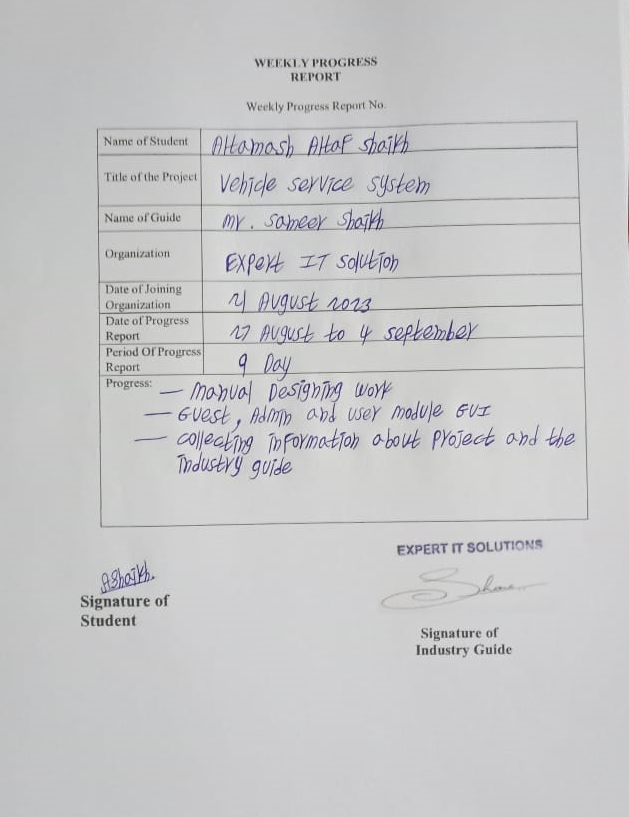 WEEKLY PROGRESS
REPORT
Weekly Progress Report No.
Name of Student Altamash Altaf Shaikh
Title of the Project Vehicle service system
Name of Guide mr. Sameer Shaikh
Organization Expert IT Solution
Date of Joining
Organization 21 August 2023
Date of Progress
Report 27 August to 4 september
Period Of Progress
Report 9 Day
Progress: — manual Designing work
— Guest, Admin and user module GUI
— collecting information about project and the
industry guide
EXPERT IT SOLUTIONS
AShaikh.
Signature of
Student
Signature of
Industry Guide